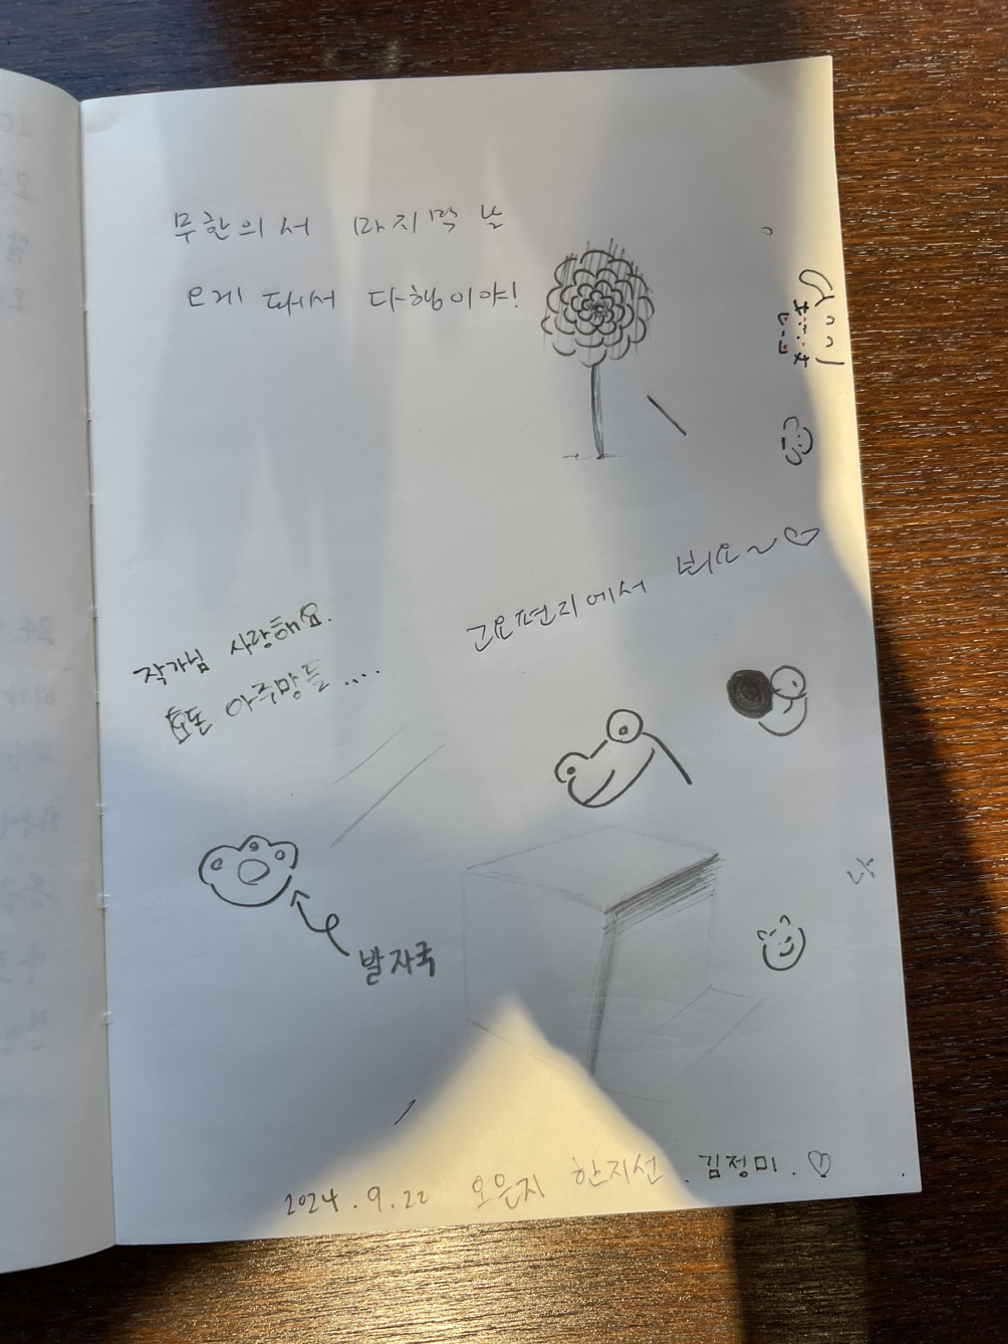 무한의서 마지막 날
오게 돼서 다행이야!
고요편지에서 봬요~♡
작가님 사랑해요.
효돈 아주망들....
발자국
나
2024.9.22 오은지 한지선. 김정미.♡